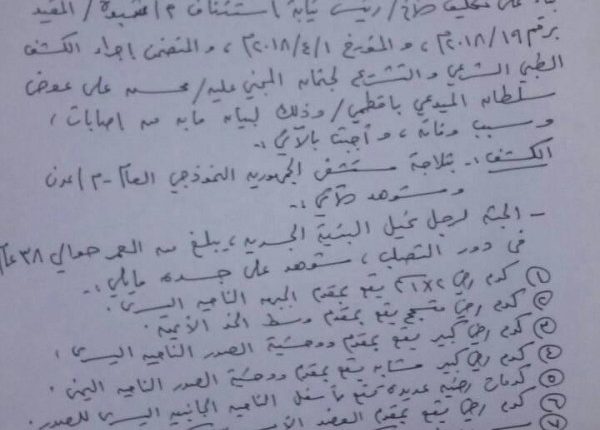 بناء على تكليف الأخ / رئيس نيابة استئناف م / / المقيد
برقم ٢٠١٨/١٩م، و المؤرخ ٢٠١٨/٤/١م، و المتضمن إجراء الكشف
الطبي الشرعي و التشريح لجثمان المجني عليه / محسن علي عوض
سلطان الميدعي باقطمي / وذلك لبيان ما به من اصابات،
و سبب وفاته، و أجبت بالآتي :-
الكشف :- بثلاجة مستشفى الجمهورية النموذجي العام - م / عدن
وشوهد الآتي :-
- الجثة لرجل نحيل البنية الجسدية، يبلغ من العمر حوالي ٣٨ عام
في دور التصلب، شوهد على جسده مايلي :-
① كدم رضي ٢×٣سم يقع بمقدم الجبهة الناحية اليسرى.
② كدم رضي متسحج يقع بمقدم وسط الخد الأيمن.
③ كدم رضي كبير يقع بمقدم ووحشية الصدر الناحية اليسرى.
④ كدم رضي كبير مشابه يقع بمقدم ووحشية الصدر الناحية اليمنى.
⑤ كدمات رضية عديدة تقع بأسفل الناحية الجانبية اليسرى للصدر.
⑥ كدم رضي يقع بمقدم العضد